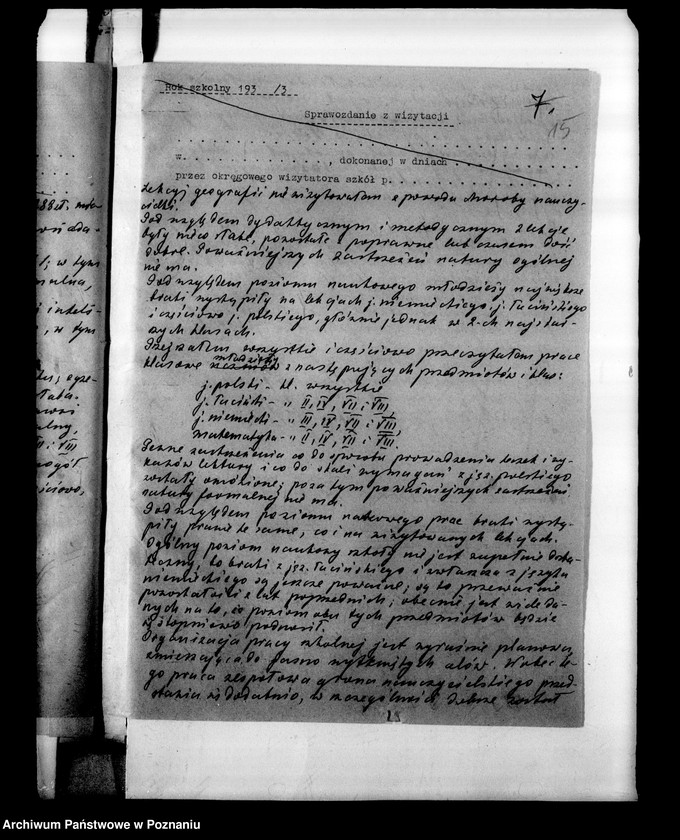 Rok szkolny 193 /3
7.
15
Sprawozdanie z wizytacji
w. . . . . . . . . . . . . . . , dokonanej w dniach . . . . . . . . . . . .
przez okręgowego wizytatora szkół p. . . . . . . . . . . . . . . . .
Lekcyj geografii nie wizytowałem z powodu choroby nauczy-
cielki.
Pod względem dydaktycznym i metodycznym 2 lekcje
były nieco słabe, pozostałe poprawne lub czasem dość
dobre. Poważniejszych zastrzeżeń natury ogólnej
nie ma.
Pod względem poziomu naukowego młodzieży największe
braki wystąpiły na lekcjach j. niemieckiego, j. łacińskiego
i częściowo j. polskiego, głównie jednak w 2-ch najstar-
szych klasach.
Przejrzałem wszystkie i częściowo przeczytałem prace
klasowe młodzieży z następujących przedmiotów i klas:
j. polski - kl. wszystkie
j. łaciński - " II, IV, VII i VIII,
j. niemiecki - " III, IV, VII i VIII,
matematyka - " II, IV, VII i VIII.
Pewne zastrzeżenia co do sposobu prowadzenia
lektury i co do skali wymagań z jęz. polskiego
zostały omówione; poza tym poważniejszych zastrzeżeń
natury formalnej nie ma.
Pod względem poziomu naukowego prac braki wystą-
piły prawie te same, co i na wizytowanych lekcjach.
Ogólny poziom naukowy szkoły nie jest zupełnie dosta-
teczny, bo braki z jęz. łacińskiego i zwłaszcza z języka
niemieckiego są jeszcze poważne; są to przeważnie
pozostałości z lat poprzednich; obecnie jest wiele da-
nych na to, że poziom obu tych przedmiotów będzie
stopniowo podnosił.
Organizacja pracy szkolnej jest wyraźnie planowa,
zmierzająca do jasno wytkniętych celów. Wobec te-
go praca zespołowa grona nauczycielskiego przed-
stawia się dodatnio, w szczególności dobrze został
Archiwum Państwowe w Poznaniu